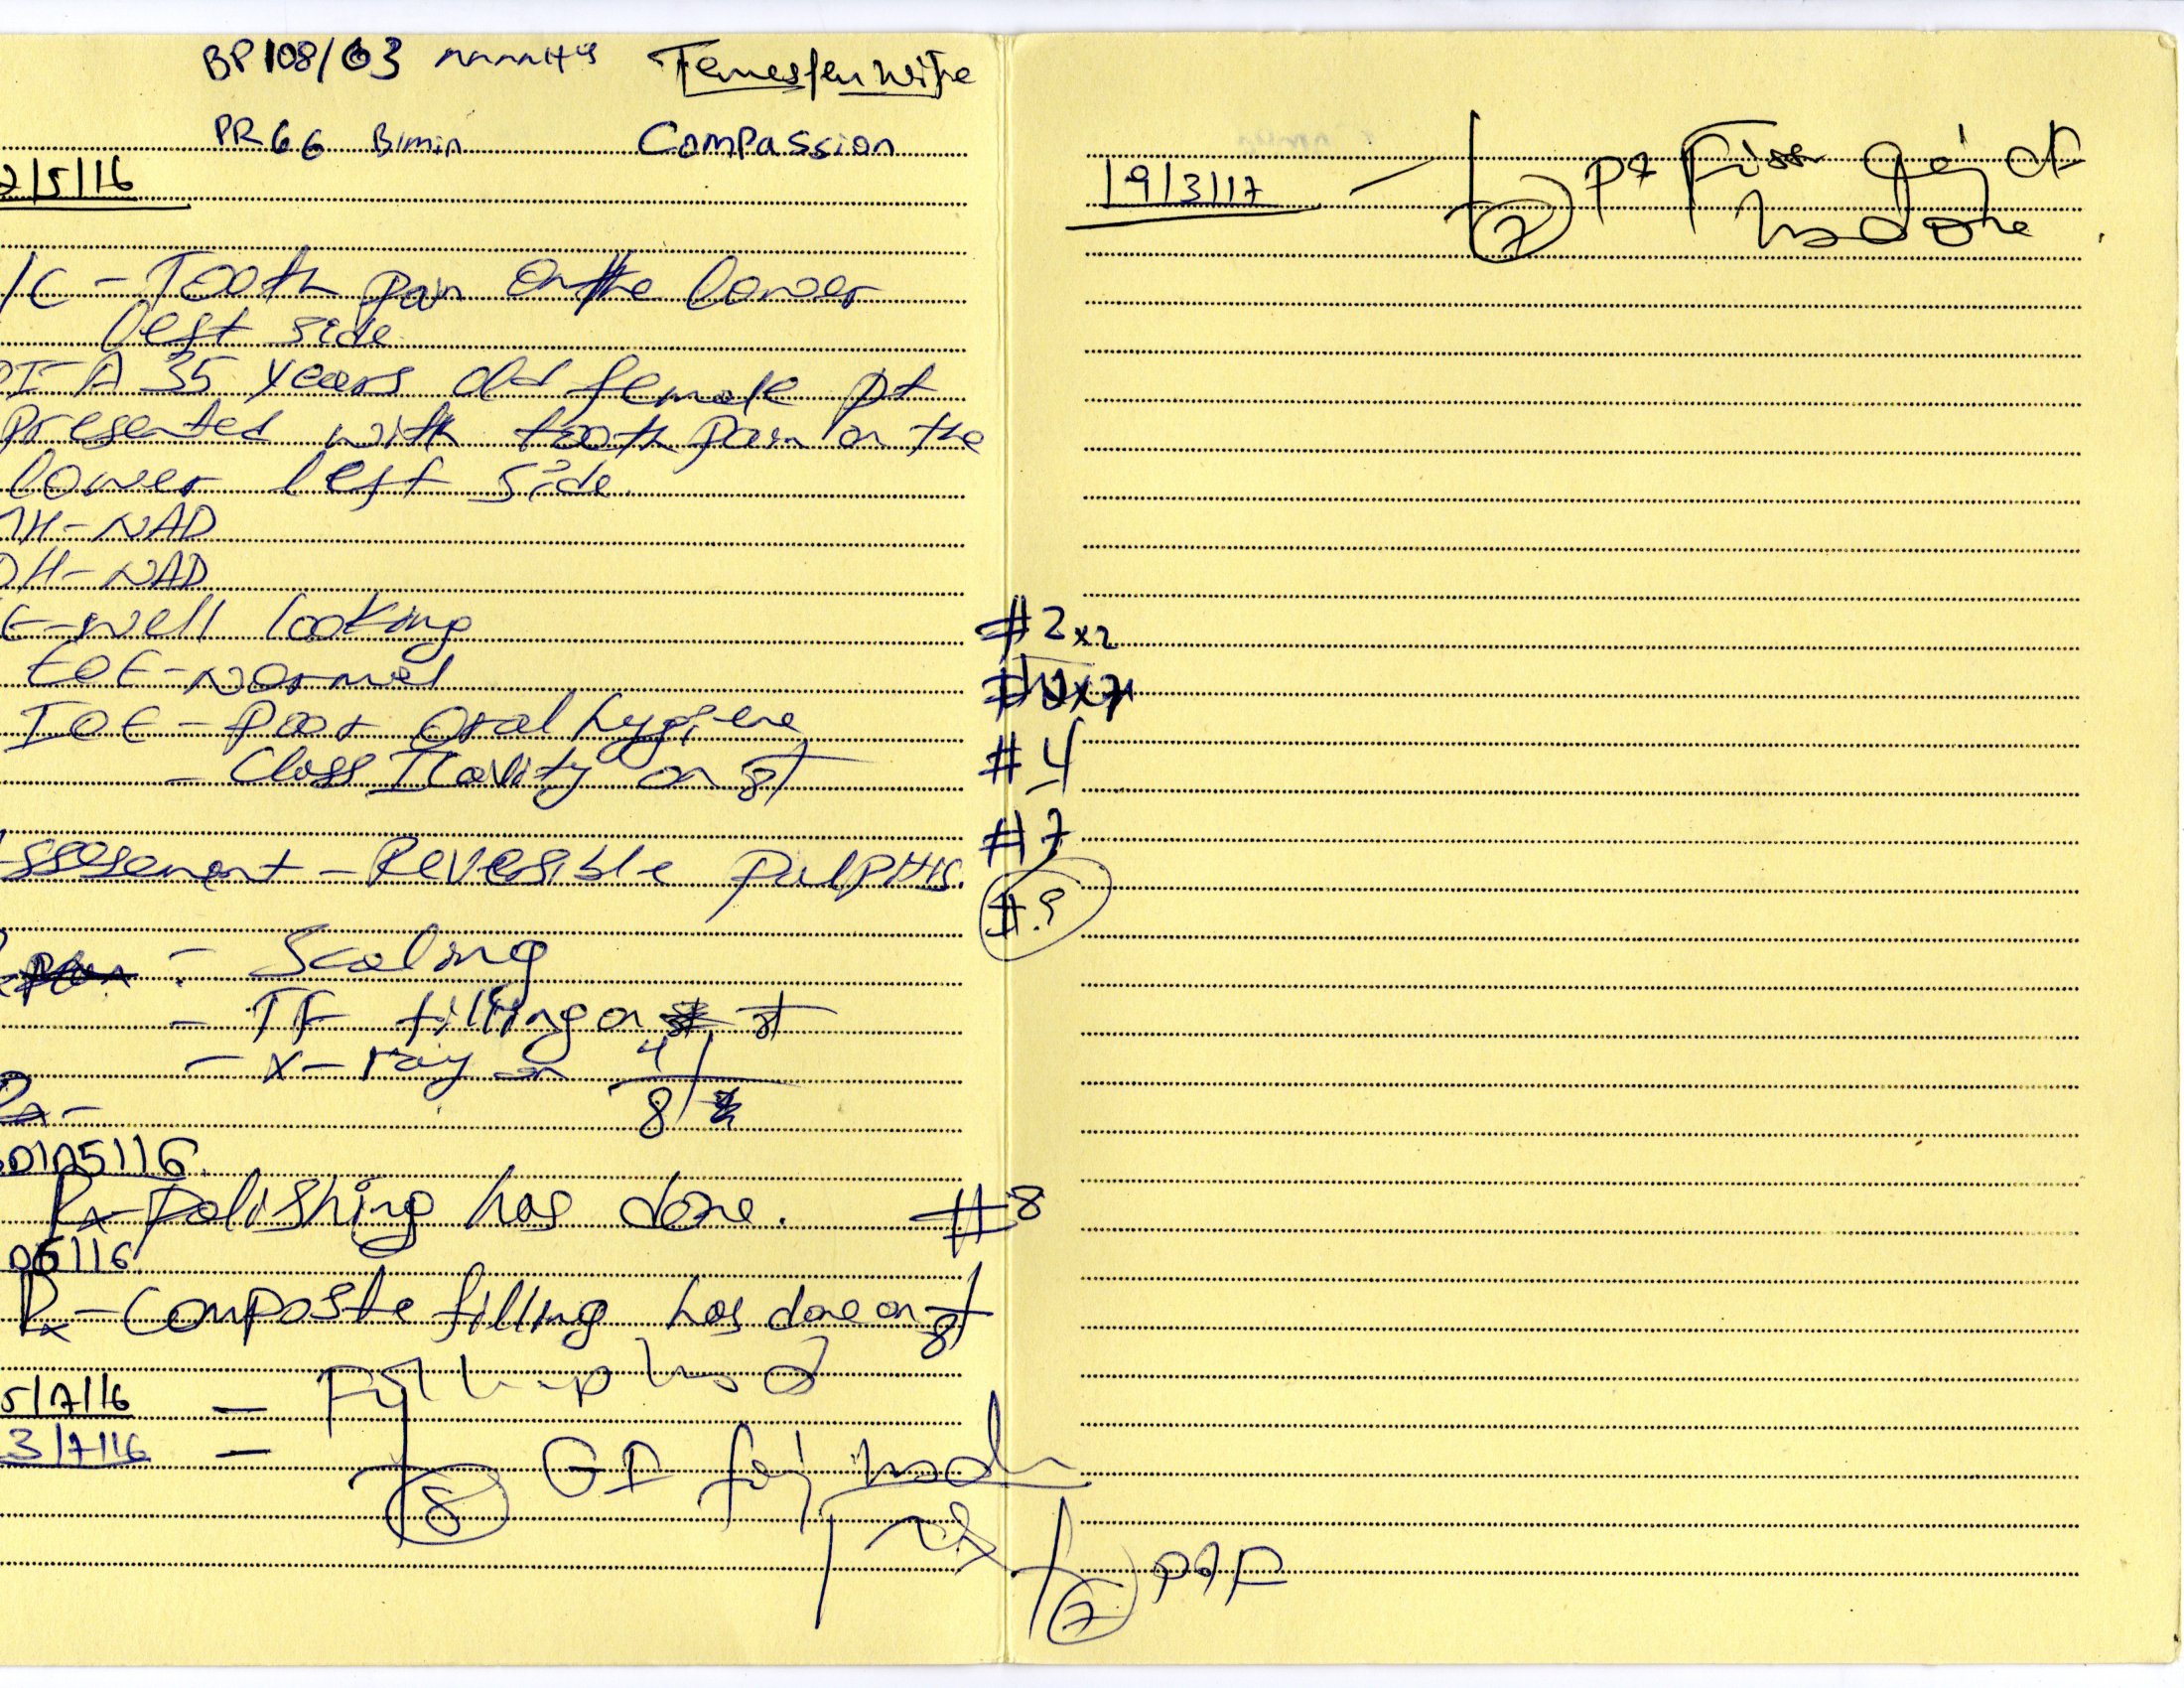 BP 108/63 mmmHg Temesfen wife
PR 66 B/min Compassion
2/5/16
/C - Tooth pain on the lower
left side
PI A 35 years old female pt
presented with tooth pain on the
lower left side.
MH - NAD
DH - NAD
E - well looking
EOE - normal
IOE - poor oral hygiene
- Class I Cavity on 8
Assesement - Reversible pulpitis.
- Scaling
- TF filling on 8
- X-ray on 4
8
Rx -
0105116
Rx - Polishing has done.
05116
Rx - Composite filling has done on 8
5/7/16 -
3/7/16 - 8 GI
7
#2x2
#4
#7
#?
#8
19/3/17 - 7 pt Fiss
done